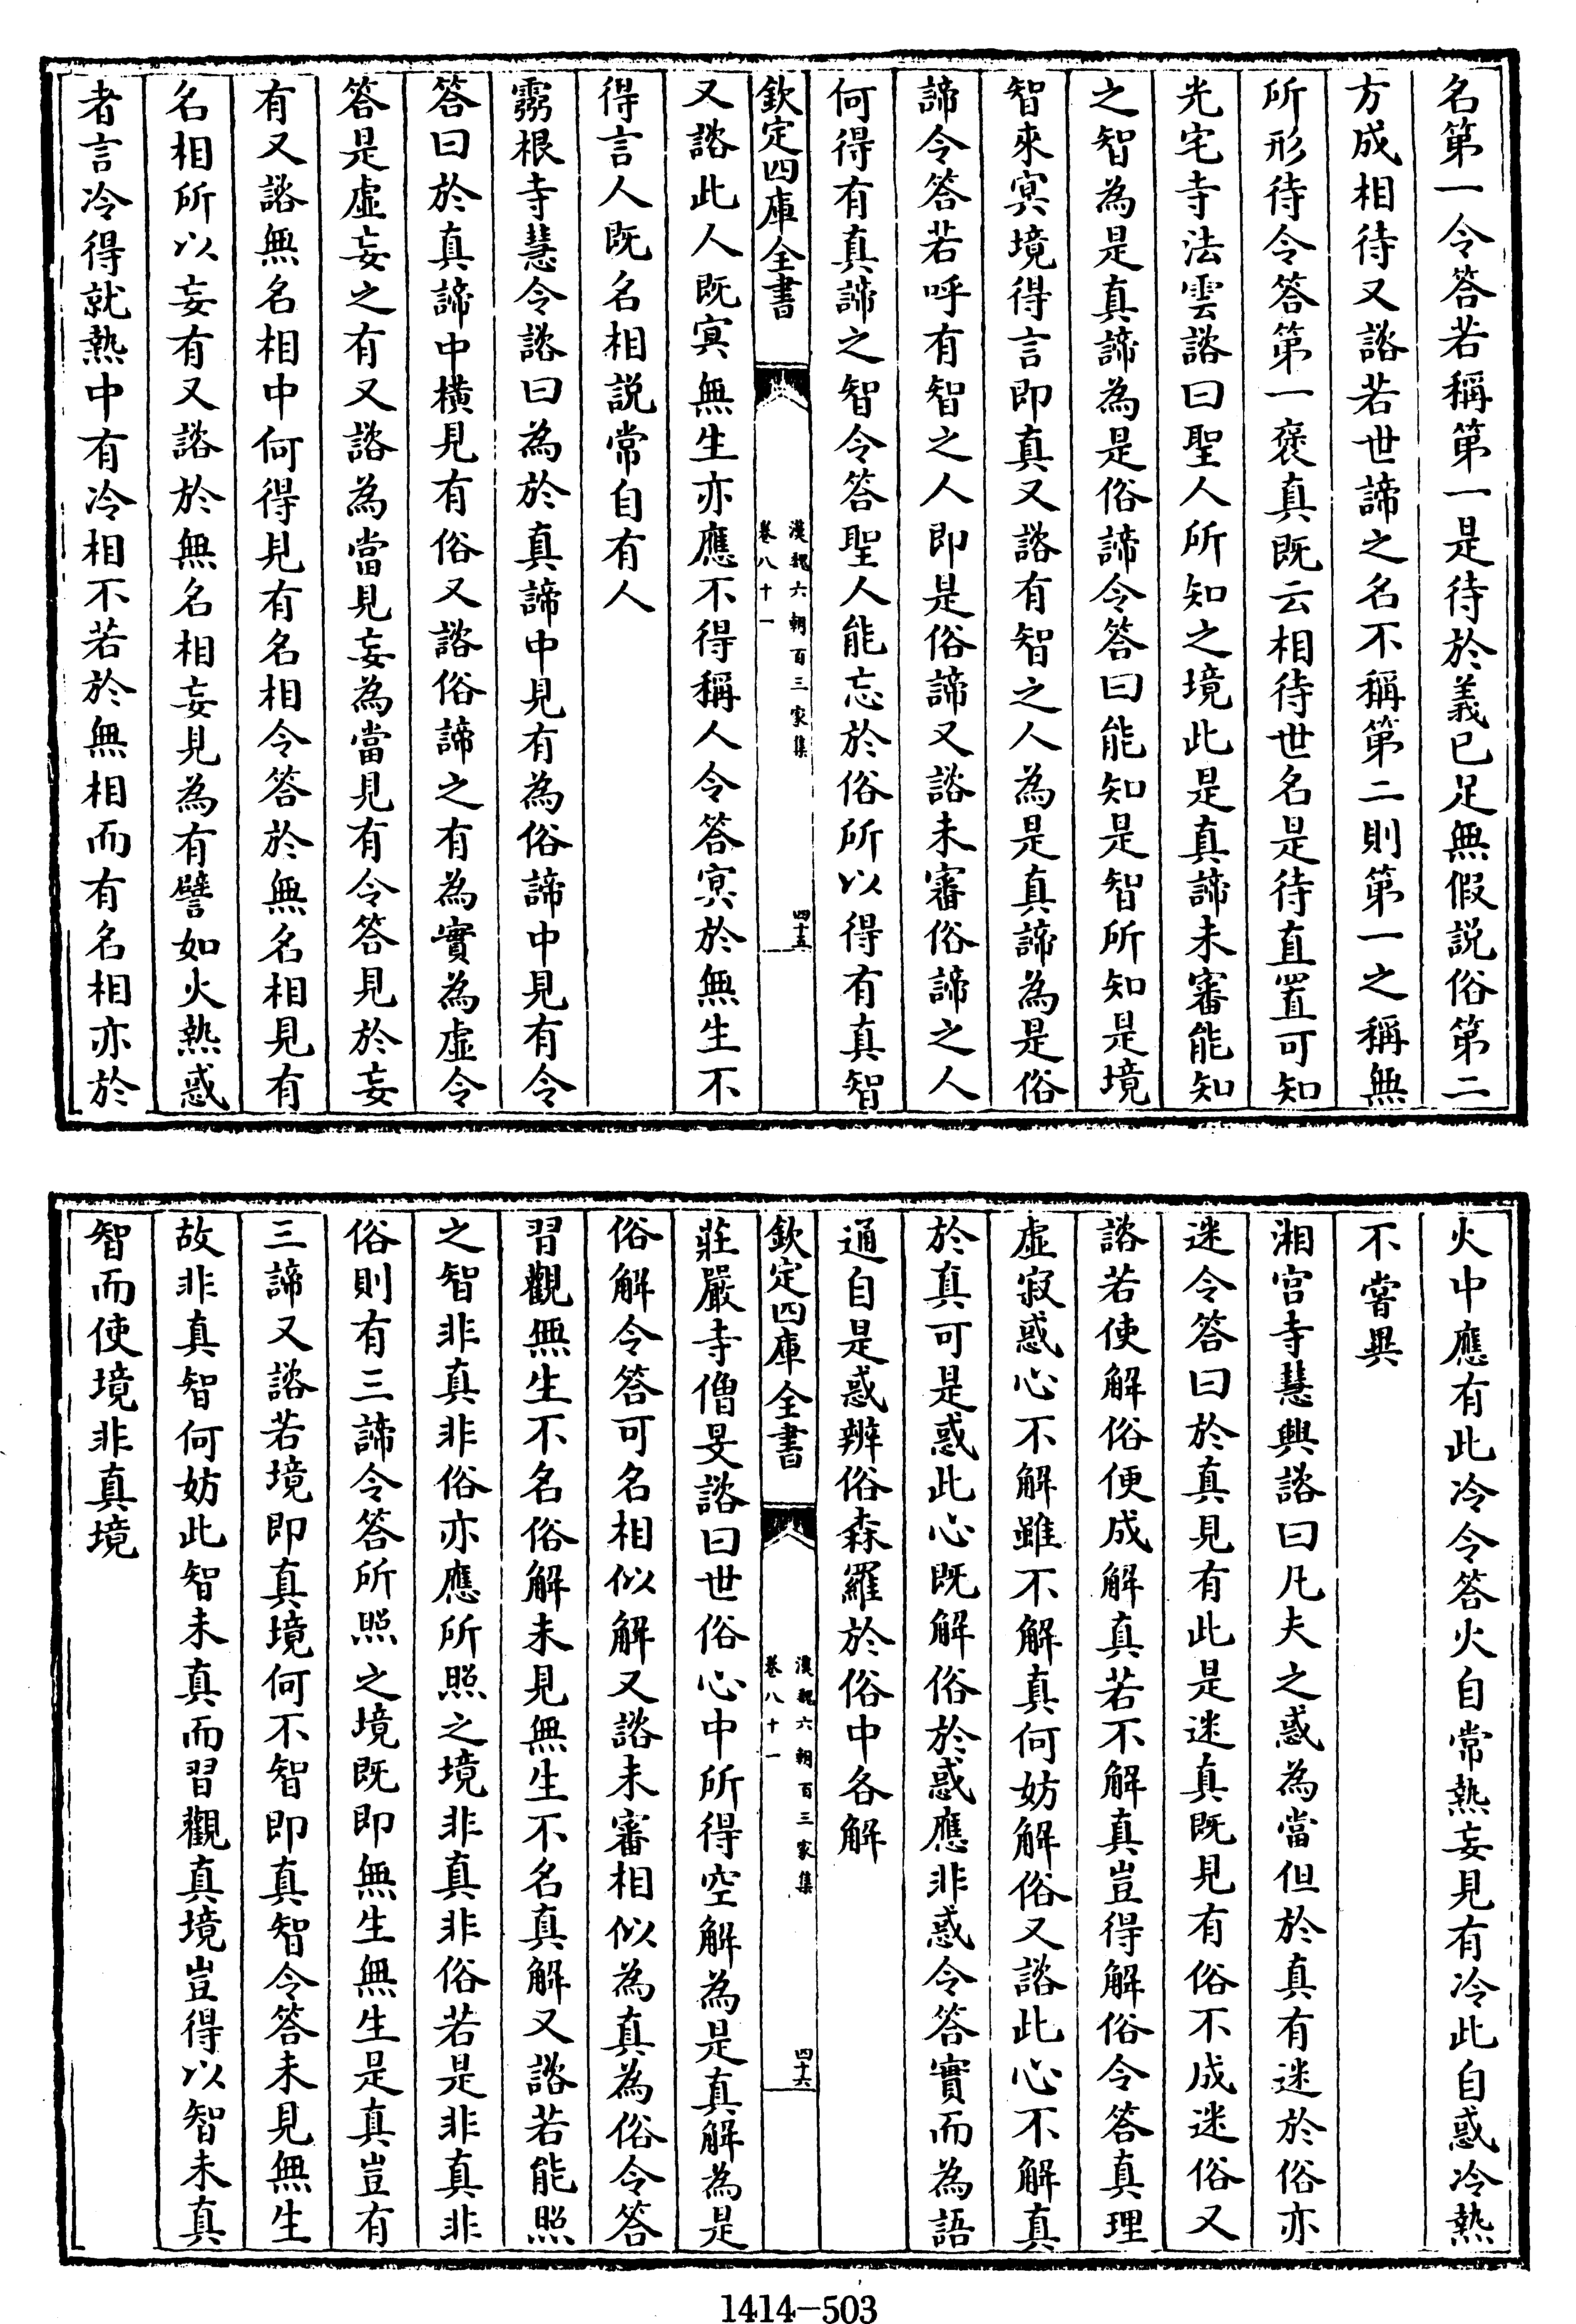 名第一令答若稱第一是待於義已足無假説俗第二
方成相待又諮若世諦之名不稱第二則第一之稱無
所形待令答第一褒真既云相待世名是待直置可知
光宅寺法雲諮曰聖人所知之境此是真諦未審能知
之智為是真諦為是俗諦令答曰能知是智所知是境
智來㝠境得言即真又諮有智之人為是真諦為是俗
諦令答若呼有智之人即是俗諦又諮未審俗諦之人
何得有真諦之智令答聖人能忘於俗所以得有真智
欽定四庫全書
漢魏六朝百三家集
卷八十一
四十五
又諮此人既㝠無生亦應不得稱人令答㝠於無生不
得言人既名相説常自有人
靈根寺慧令諮曰為於真諦中見有為俗諦中見有令
答曰於真諦中横見有俗又諮俗諦之有為實為虚令
答是虚妄之有又諮為當見妄為當見有令答見於妄
有又諮無名相中何得見有名相令答於無名相見有
名相所以妄有又諮於無名相妄見為有譬如火熱惑
者言冷得就熱中有冷相不若於無相而有名相亦於
火中應有此冷令答火自常熱妄見有冷此自惑冷熱
不甞異
湘宫寺慧興諮曰凡夫之惑為當但於真有迷於俗亦
迷令答曰於真見有此是迷真既見有俗不成迷俗又
諮若使解俗便成解真若不解真豈得解俗令答真理
虚寂惑心不解雖不解真何妨解俗又諮此心不解真
於真可是惑此心既解俗於惑應非惑令答實而為語
通自是惑辨俗森羅於俗中各解
欽定四庫全書
漢魏六朝百三家集
卷八十一
四十六
莊嚴寺僧旻諮曰世俗心中所得空解為是真解為是
俗解令答可名相似解又諮未審相似為真為俗令答
習觀無生不名俗解未見無生不名真解又諮若能照
之智非真非俗亦應所照之境非真非俗若是非真非
俗則有三諦令答所照之境既即無生無生是真豈有
三諦又諮若境即真境何不智即真智令答未見無生
故非真智何妨此智未真而習觀真境豈得以智未真
智而使境非真境
1414—503